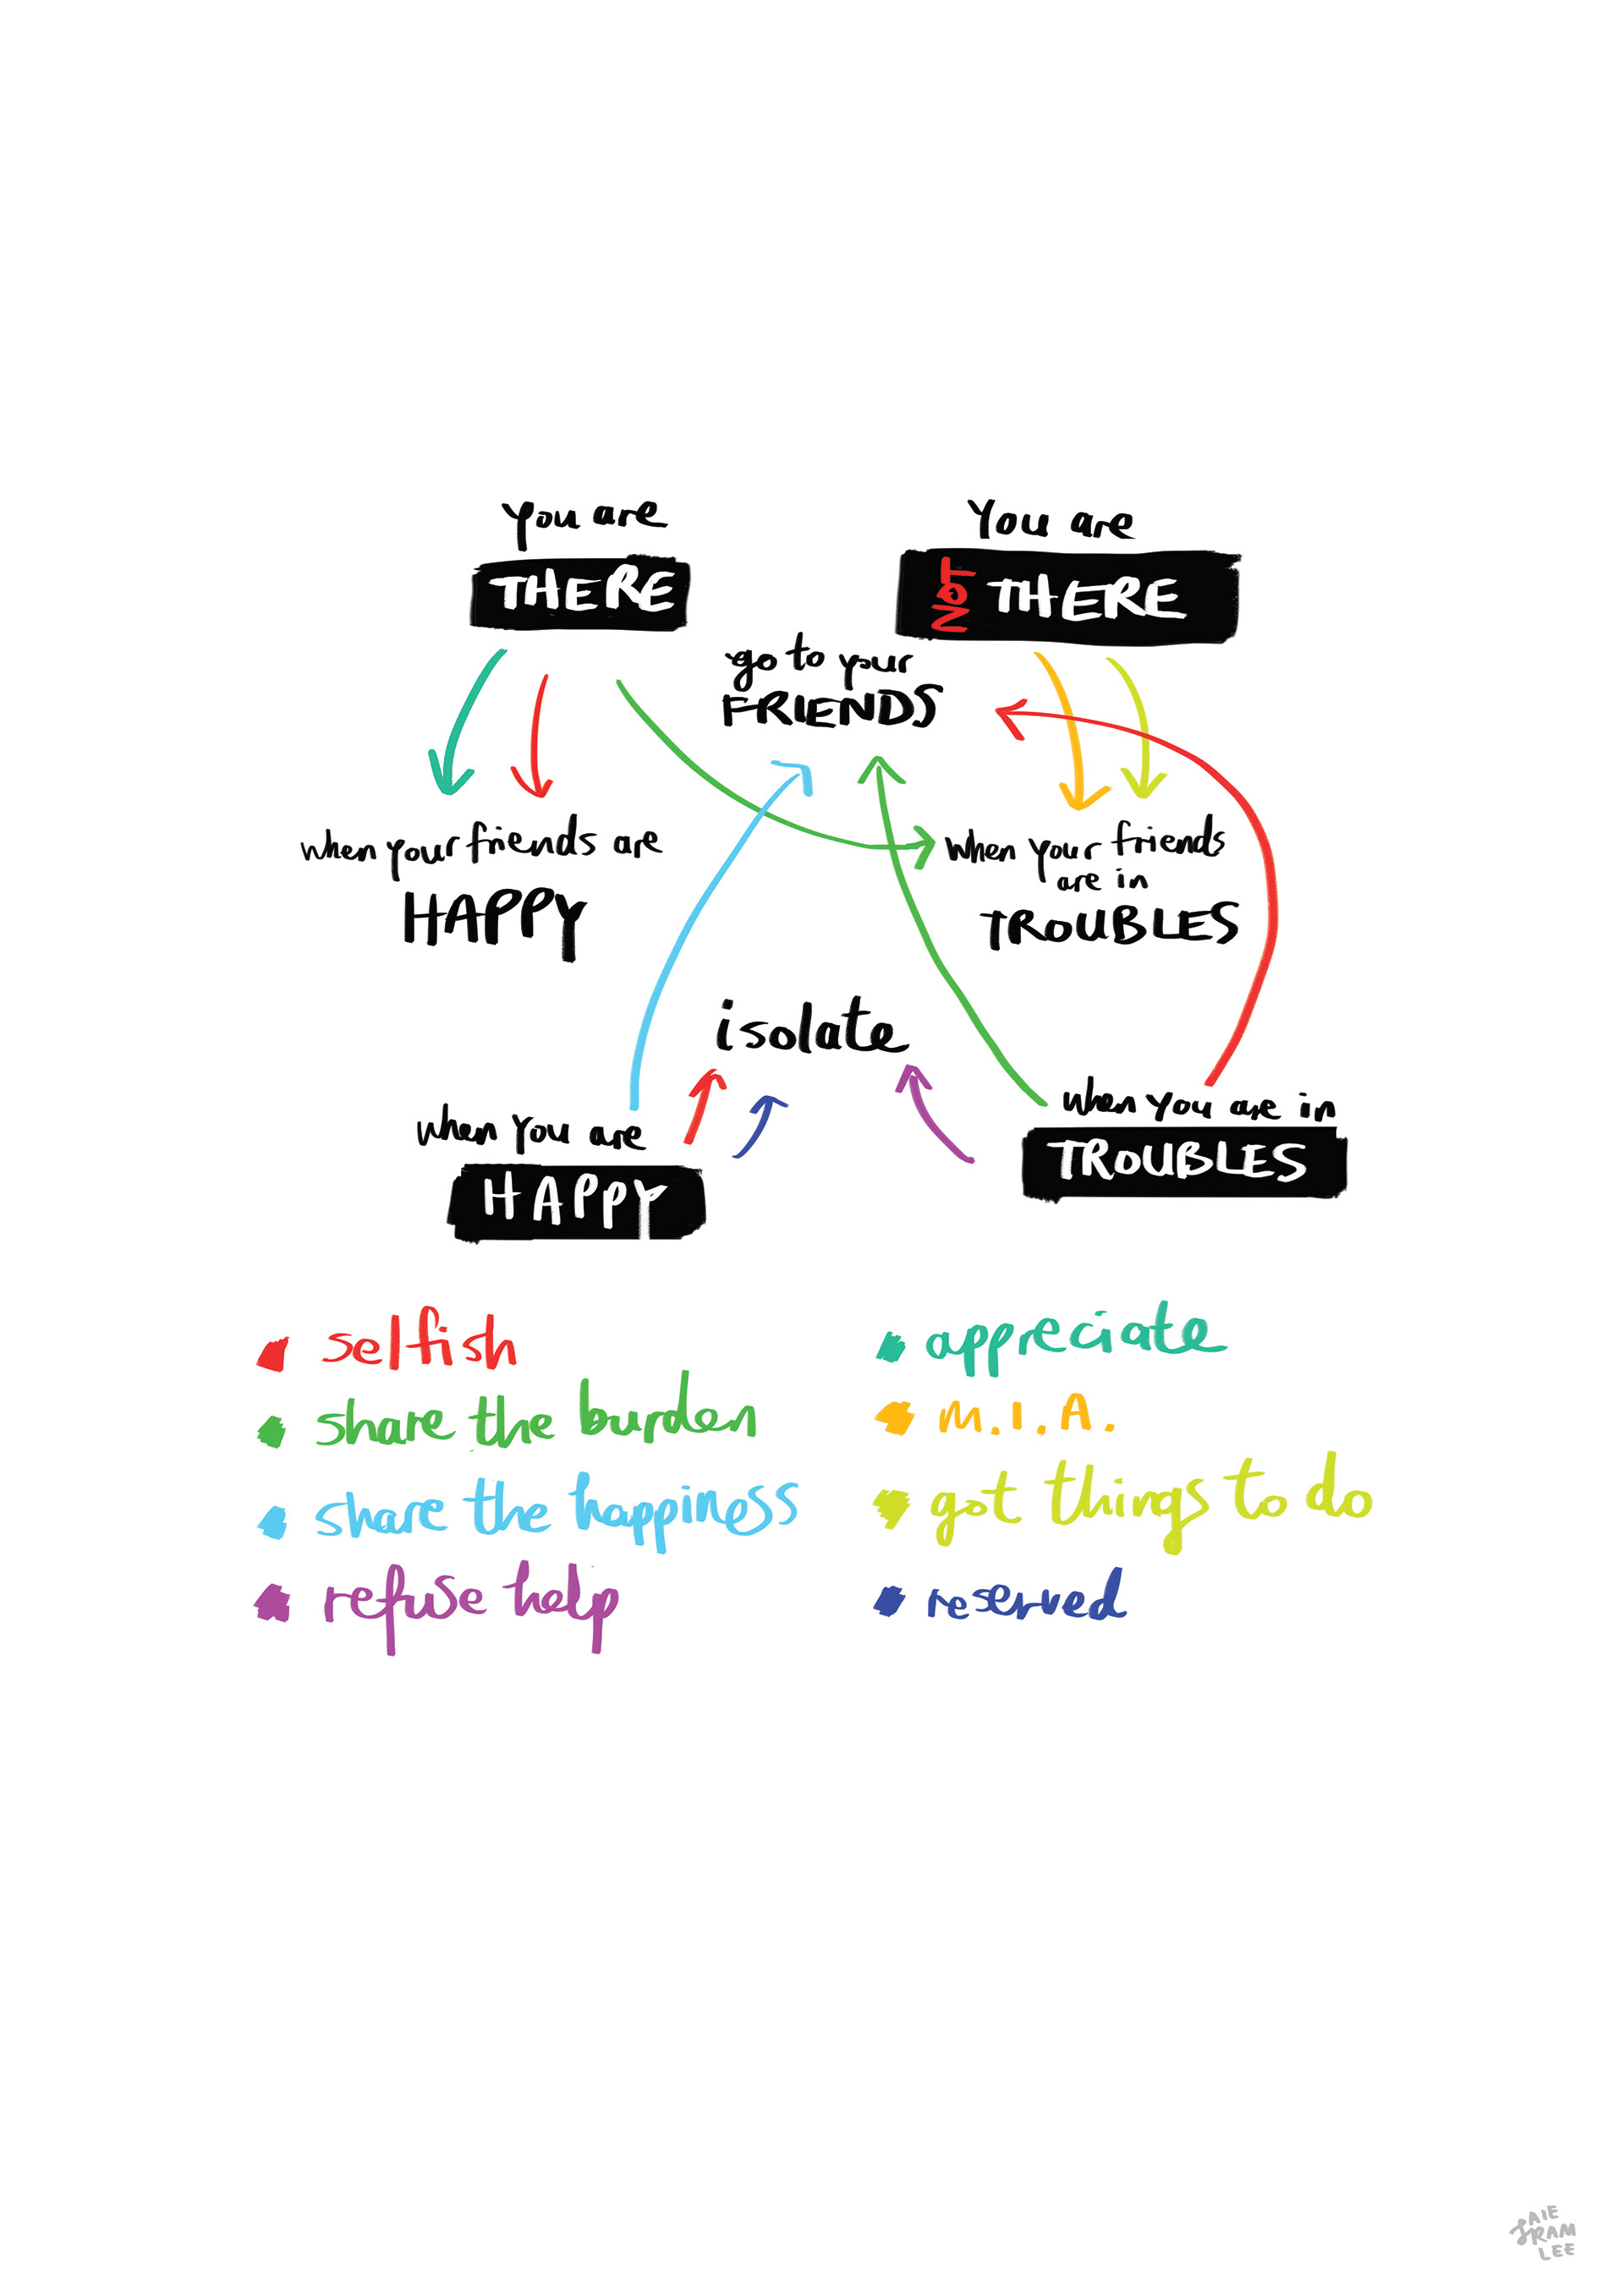 you are
THERE
You are
NOT THERE
go to your
FRIENDS
when your friends are
HAPPY
when your friends
are in
TROUBLES
isolate
when you are
HAPPY
when you are in
TROUBLES
selfish
share the burden
share the happiness
refuse help
appreciate
M.I.A.
got things to do
reserved